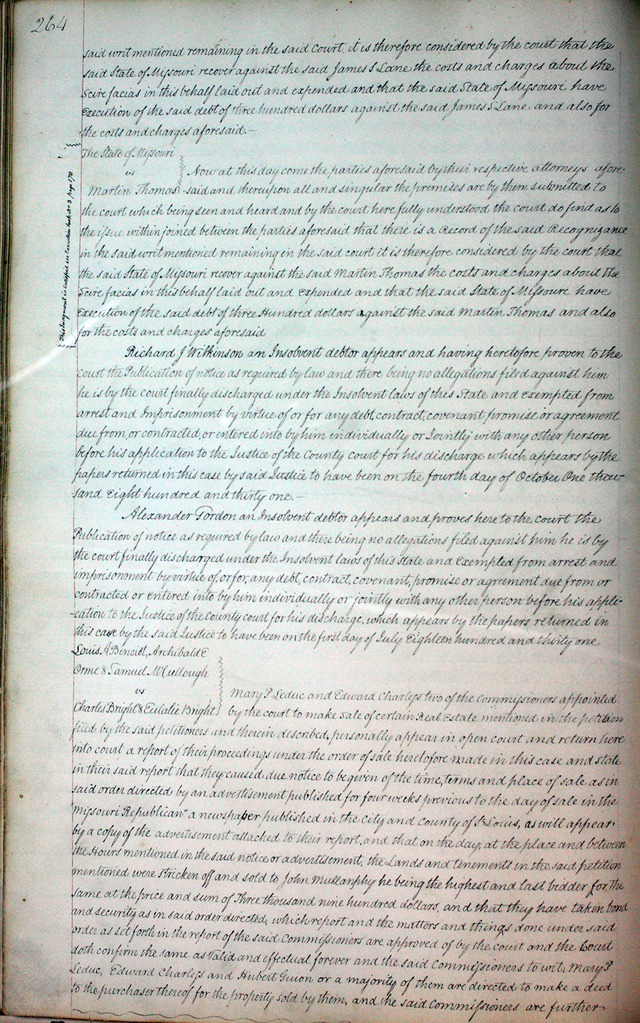 264
said writ mentioned remaining in the said Court, it is therefore considered by the court that the
said State of Missouri recover against the said James S Lane the costs and charges about the
Scire facias in this behalf laid out and expended and that the said State of Missouri have
Execution of the said debt of three hundred dollars against the said James S Lane and also for
the costs and charges aforesaid.—
The State of Missouri
vs
Now at this day come the parties aforesaid by their respective attorneys afore-
Martin Thomas said and thereupon all and singular the premises are by them submitted to
the court which being seen and heard and by the court here fully understood the court do find as to
the issue within joined between the parties aforesaid that there is a Record of the said Recognizance
in the said writ mentioned remaining in the said court it is therefore considered by the court that
the said State of Missouri recover against the said Martin Thomas the costs and charges about the
Scire facias in this behalf laid out and Expended and that the said State of Missouri have
Execution of the said debt of three Hundred dollars against the said Martin Thomas and also
for the costs and charges aforesaid
Richard J Wilkinson an Insolvent debtor appears and having heretofore proven to the
court the Publication of notice as required by law and there being no allegations filed against him
he is by the court finally discharged under the Insolvent laws of this State and exempted from
arrest and Imprisonment by virtue of or for any debt, contract, covenant promise or agreement
due from, or contracted, or entered into by him individually or Jointly with any other person
before his application to the Justice of the County Court for his discharge which appears by the
papers returned in this case by said Justice to have been on the fourth day of October One thou-
sand Eight hundred and thirty one.—
Alexander Gordon an Insolvent debtor appears and proves here to the court the
Publication of notice as required by law and there being no allegations filed against him he is by
the court finally discharged under the Insolvent laws of this State and Exempted from arrest and
imprisonment by virtue of or for, any debt, contract, covenant, promise or agrement due from or
contracted or entered into by him individually or jointly with any other person before his appli-
-cation to the Justice of the County court for his discharge, which appears by the papers returned in
this case by the said Justice to have been on the first day of July Eighteen hundred and thirty one
Louis A Benoist, Archibald E
Orme & Samuel McCullough
vs
Mary P. Leduc and Edward Charless two of the Commissioners appointed
Charles Bright & Eulalie Bright by the court to make sale of certain Real Estate mentioned in the petition
filed by the said petitioners and therein described, personally appear in open court and return here
into court a report of their proceedings under the order of sale heretofore made in this case and state
in their said report that they caused due notice to be given of the time, terms and place of sale as in
said order directed by an advertisement published for four weeks previous to the day of sale in the
"Missouri Republican" a newspaper published in the City and County of St Louis, as will appear
by a copy of the advertisement attached to their report, and that on the day, at the place and between
the Hours mentioned in the said notice or advertisement, the Lands and tenements in the said petition
mentioned were Stricken off and sold to John Mullanphy he being the highest and last bidder for the
same at the price and sum of Three thousand nine hundred dollars, and that they have taken bond
and security as in said order directed, which report and the matters and things done under said
order as set forth in the report of the said Commissioners are approved of by the court and the Court
doth confirm the same as valid and effectual forever and the said Commissioners to wit, Mary P
Leduc, Edward Charless and Hubert Guion or a majority of them are directed to make a deed
to the purchaser thereof for the property sold by them, and the said Commissioners are further